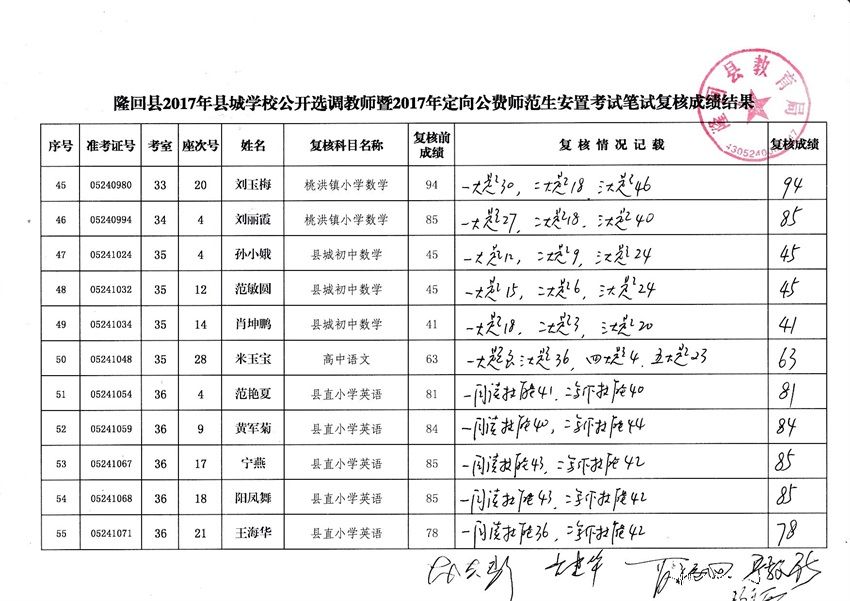 隆回县2017年县城学校公开选调教师暨2017年定向公费师范生安置考试笔试复核成绩结果
隆回县教育局
序号 准考证号 考室 座次号 姓名 复核科目名称 复核前成绩 复核情况记载 复核成绩
45 05240980 33 20 刘玉梅 桃洪镇小学数学 94 一大题30，二大题18，三大题46 94
46 05240994 34 4 刘丽霞 桃洪镇小学数学 85 一大题27，二大题18，三大题40 85
47 05241024 35 4 孙小娥 县城初中数学 45 一大题12，二大题9，三大题24 45
48 05241032 35 12 范敏圆 县城初中数学 45 一大题15，二大题6，三大题24 45
49 05241034 35 14 肖坤鹏 县城初中数学 41 一大题18，二大题3，三大题20 41
50 05241048 35 28 米玉宝 高中语文 63 三大题36，四大题4，五大题23 63
51 05241054 36 4 范艳夏 县直小学英语 81 一阅读技能41，二写作技能40 81
52 05241059 36 9 黄军菊 县直小学英语 84 一阅读技能40，二写作技能44 84
53 05241067 36 17 宁燕 县直小学英语 85 一阅读技能43，二写作技能42 85
54 05241068 36 18 阳凤舞 县直小学英语 85 一阅读技能43，二写作技能42 85
55 05241071 36 21 王海华 县直小学英语 78 一阅读技能36，二写作技能42 78